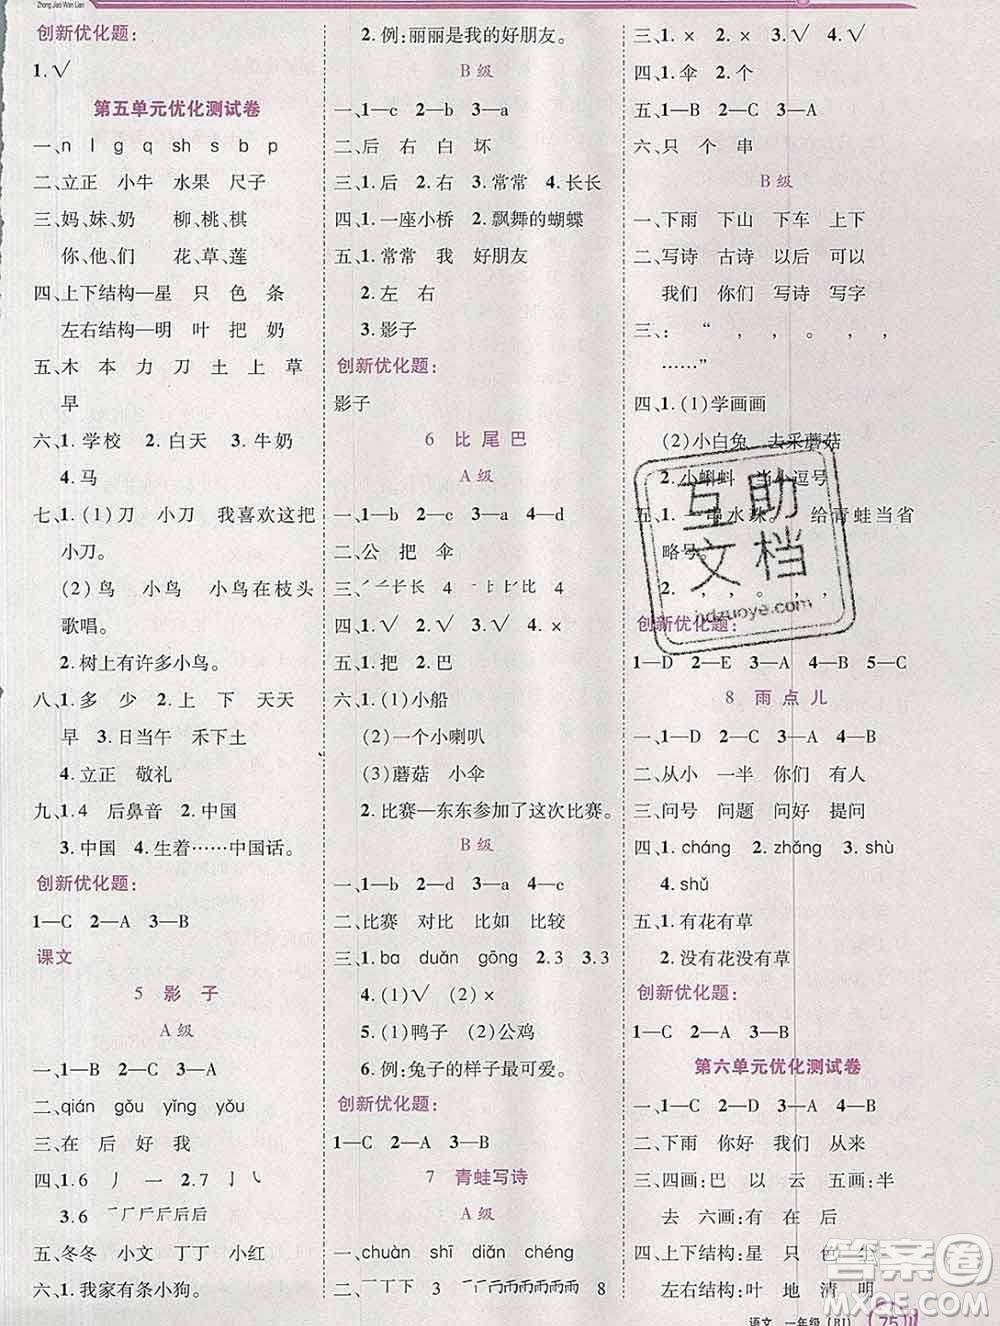 Zhong Jiao Wan Lian
创新优化题:
1.√
第五单元优化测试卷
一、n l g q sh s b p
二、立正 小牛 水果 尺子
三、妈、妹、奶 柳、桃、棋
你、他、们 花、草、莲
四、上下结构—星 只 色 条
左右结构—明 叶 把 奶
五、木 本 力 刀 土 上 草
早
六、1.学校 2.白天 3.牛奶
4.马
七、1.(1)刀 小刀 我喜欢这把
小刀。
(2)鸟 小鸟 小鸟在枝头
歌唱。
2.树上有许多小鸟。
八、1.多 少 2.上 下 天天
早 3.日当午 禾下土
4.立正 敬礼
九、1.4 后鼻音 2.中国
3.中国 4.生着……中国话。
创新优化题:
1—C 2—A 3—B
课文
5 影 子
A 级
一、1—B 2—A 3—C
二、qián gǒu yǐng yǒu
三、在 后 好 我
四、1.6 丿 一 2.7 亅 乚
3.6
五、冬冬 小文 丁丁 小红
六、1.我家有条小狗。
2.例:丽丽是我的好朋友。
B 级
一、1—c 2—b 3—a
二、后 右 白 坏
三、1.后 2.右 3.常常 4.长长
四、1.一座小桥 2.飘舞的蝴蝶
五、1.常常 我 好朋友
2.左 右
3.影子
创新优化题:
影子
6 比 尾 巴
A 级
一、1—b 2—c 3—a 4—d
二、公 把 伞
三、 4 4
四、1.√ 2.√ 3.√ 4.×
五、1.把 2.巴
六、1.(1)小船
(2)一个小喇叭
(3)蘑菇 小伞
2.比赛—东东参加了这次比赛。
B 级
一、1—b 2—d 3—a 4—c
二、比赛 对比 比如 比较
三、1.ba duǎn gōng 2.3 3.3
4.(1)√ (2)×
5.(1)鸭子 (2)公鸡
6.例:兔子的样子最可爱。
创新优化题:
1—C 2—A 3—B
7 青蛙写诗
A 级
一、chuàn shī diǎn chéng
二、 3 8
三、1.× 2.× 3.√ 4.√
四、1.伞 2.个
五、1—B 2—C 3—A
六、只 个 串
B 级
一、下雨 下山 下车 上下
二、写诗 古诗 以后 可以
我们 你们 写诗 写字
三、: “ , , 。 ,
……”
四、1.(1)学画画
(2)小白兔 去采蘑菇
2.小蝌蚪 当小逗号
五、1. 串水珠。 给青蛙当省
略号。
2.
创新优化题:
1—D 2—E 3—A 4—B 5—C
8 雨 点 儿
一、1—D 2—C 3—A 4—B
二、从小 一半 你们 有人
三、问号 问题 问好 提问
四、1.cháng 2.zhǎng 3.shù
4.shǔ
五、1.有花有草
2.没有花没有草
创新优化题:
1—C 2—A 3—B
第六单元优化测试卷
一、1—C 2—D 3—A 4—B
二、下雨 你好 我们 从来
三、四画:巴 以 云 五画:半
去 六画:有 在 后
四、上下结构:星 只 色 尘
左右结构:叶 地 清 明
互助文档
hdzuoye.com
答案圈
语文 一年级(RJ) 75